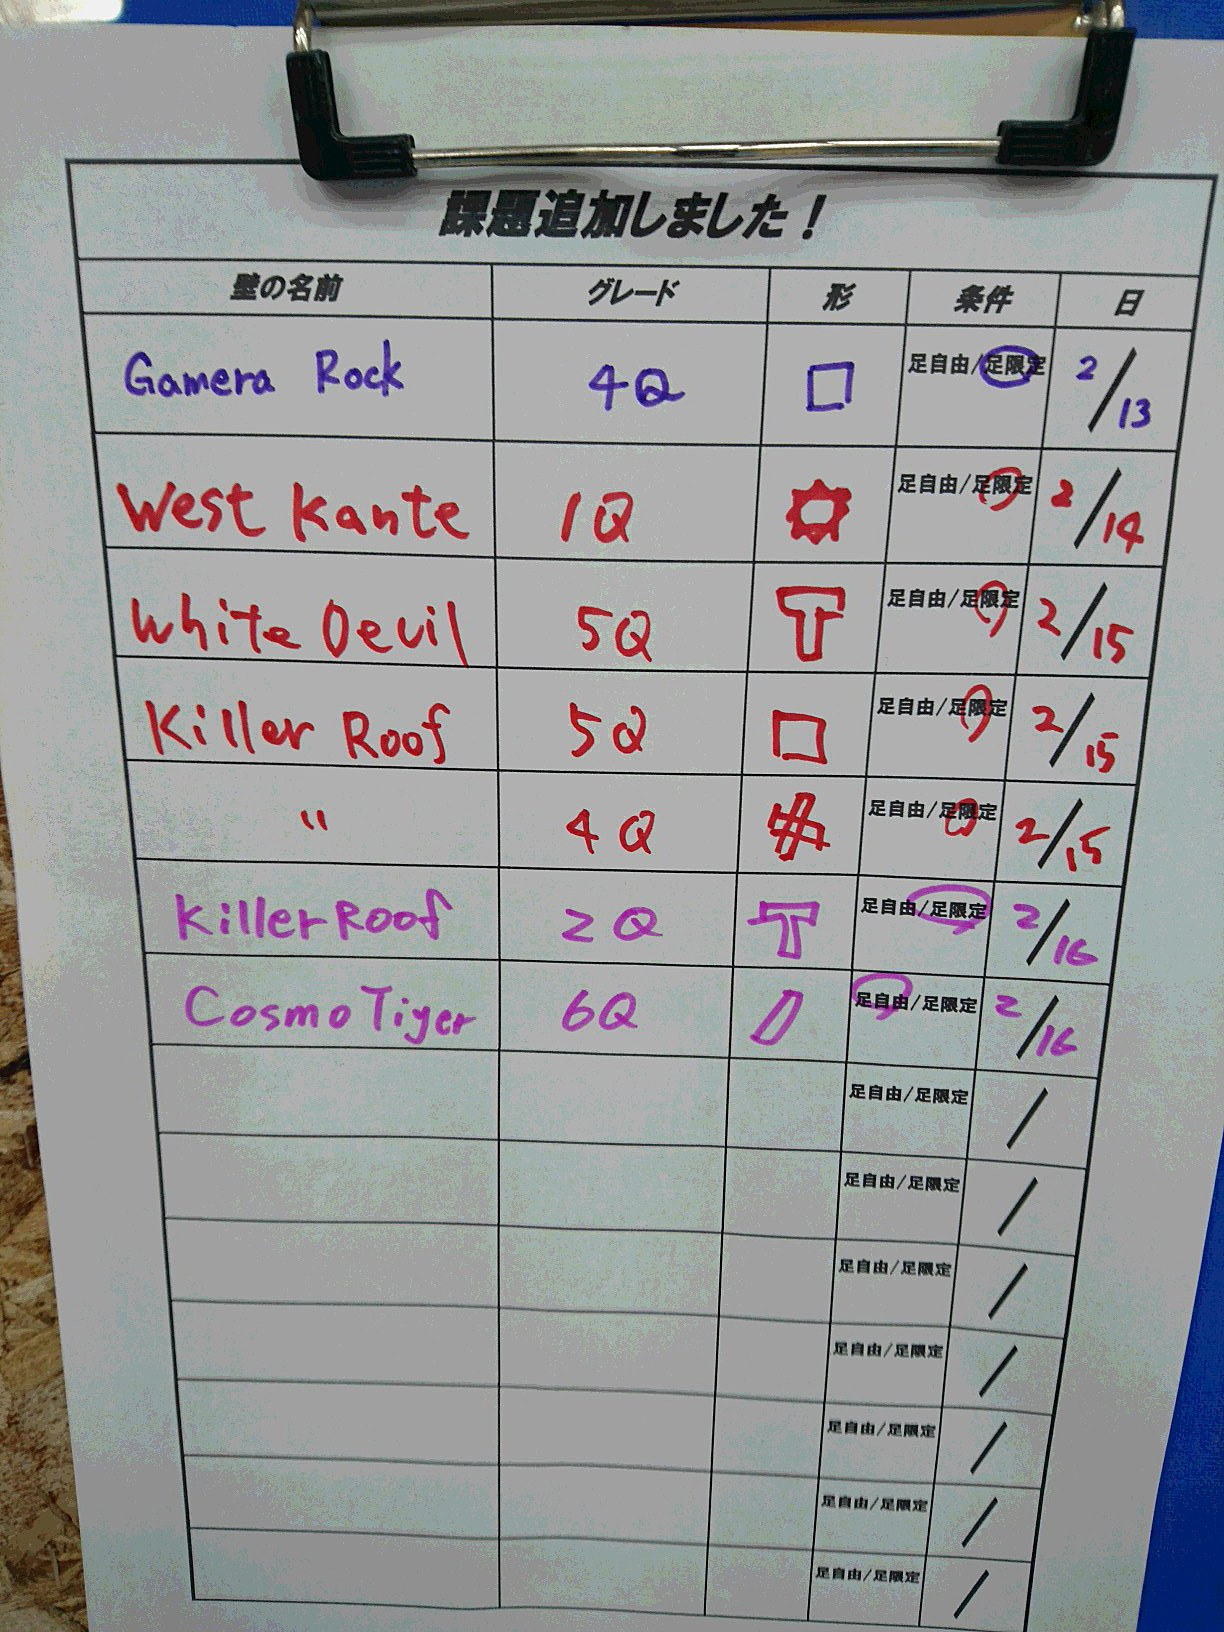 課題追加しました！
壁の名前 グレード 形 条件 日
Gamera Rock 4Q □ 足自由/足限定 2/13
West Kante 1Q 足自由/足限定 2/14
White Devil 5Q T 足自由/足限定 2/15
Killer Roof 5Q □ 足自由/足限定 2/15
〃 4Q 足自由/足限定 2/15
Killer Roof 2Q T 足自由/足限定 2/16
Cosmo Tiger 6Q 足自由/足限定 2/16
足自由/足限定 /
足自由/足限定 /
足自由/足限定 /
足自由/足限定 /
足自由/足限定 /
足自由/足限定 /
足自由/足限定 /